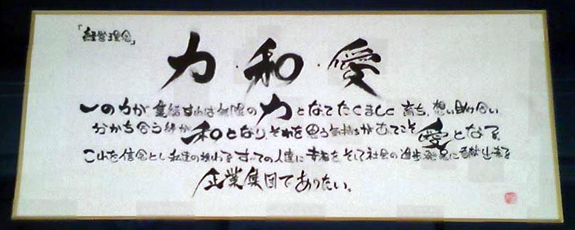 「経営理念」
力・和・愛
一の力が集結すれば無限の力となってたくましく育ち、想い助け合い
分かち合う絆が和となりそれを思う気持ちがあってこそ愛となる
これを信念とし私達の携わるすべての人達に幸福をそして社会の進歩発展に貢献出来る
企業集団でありたい。